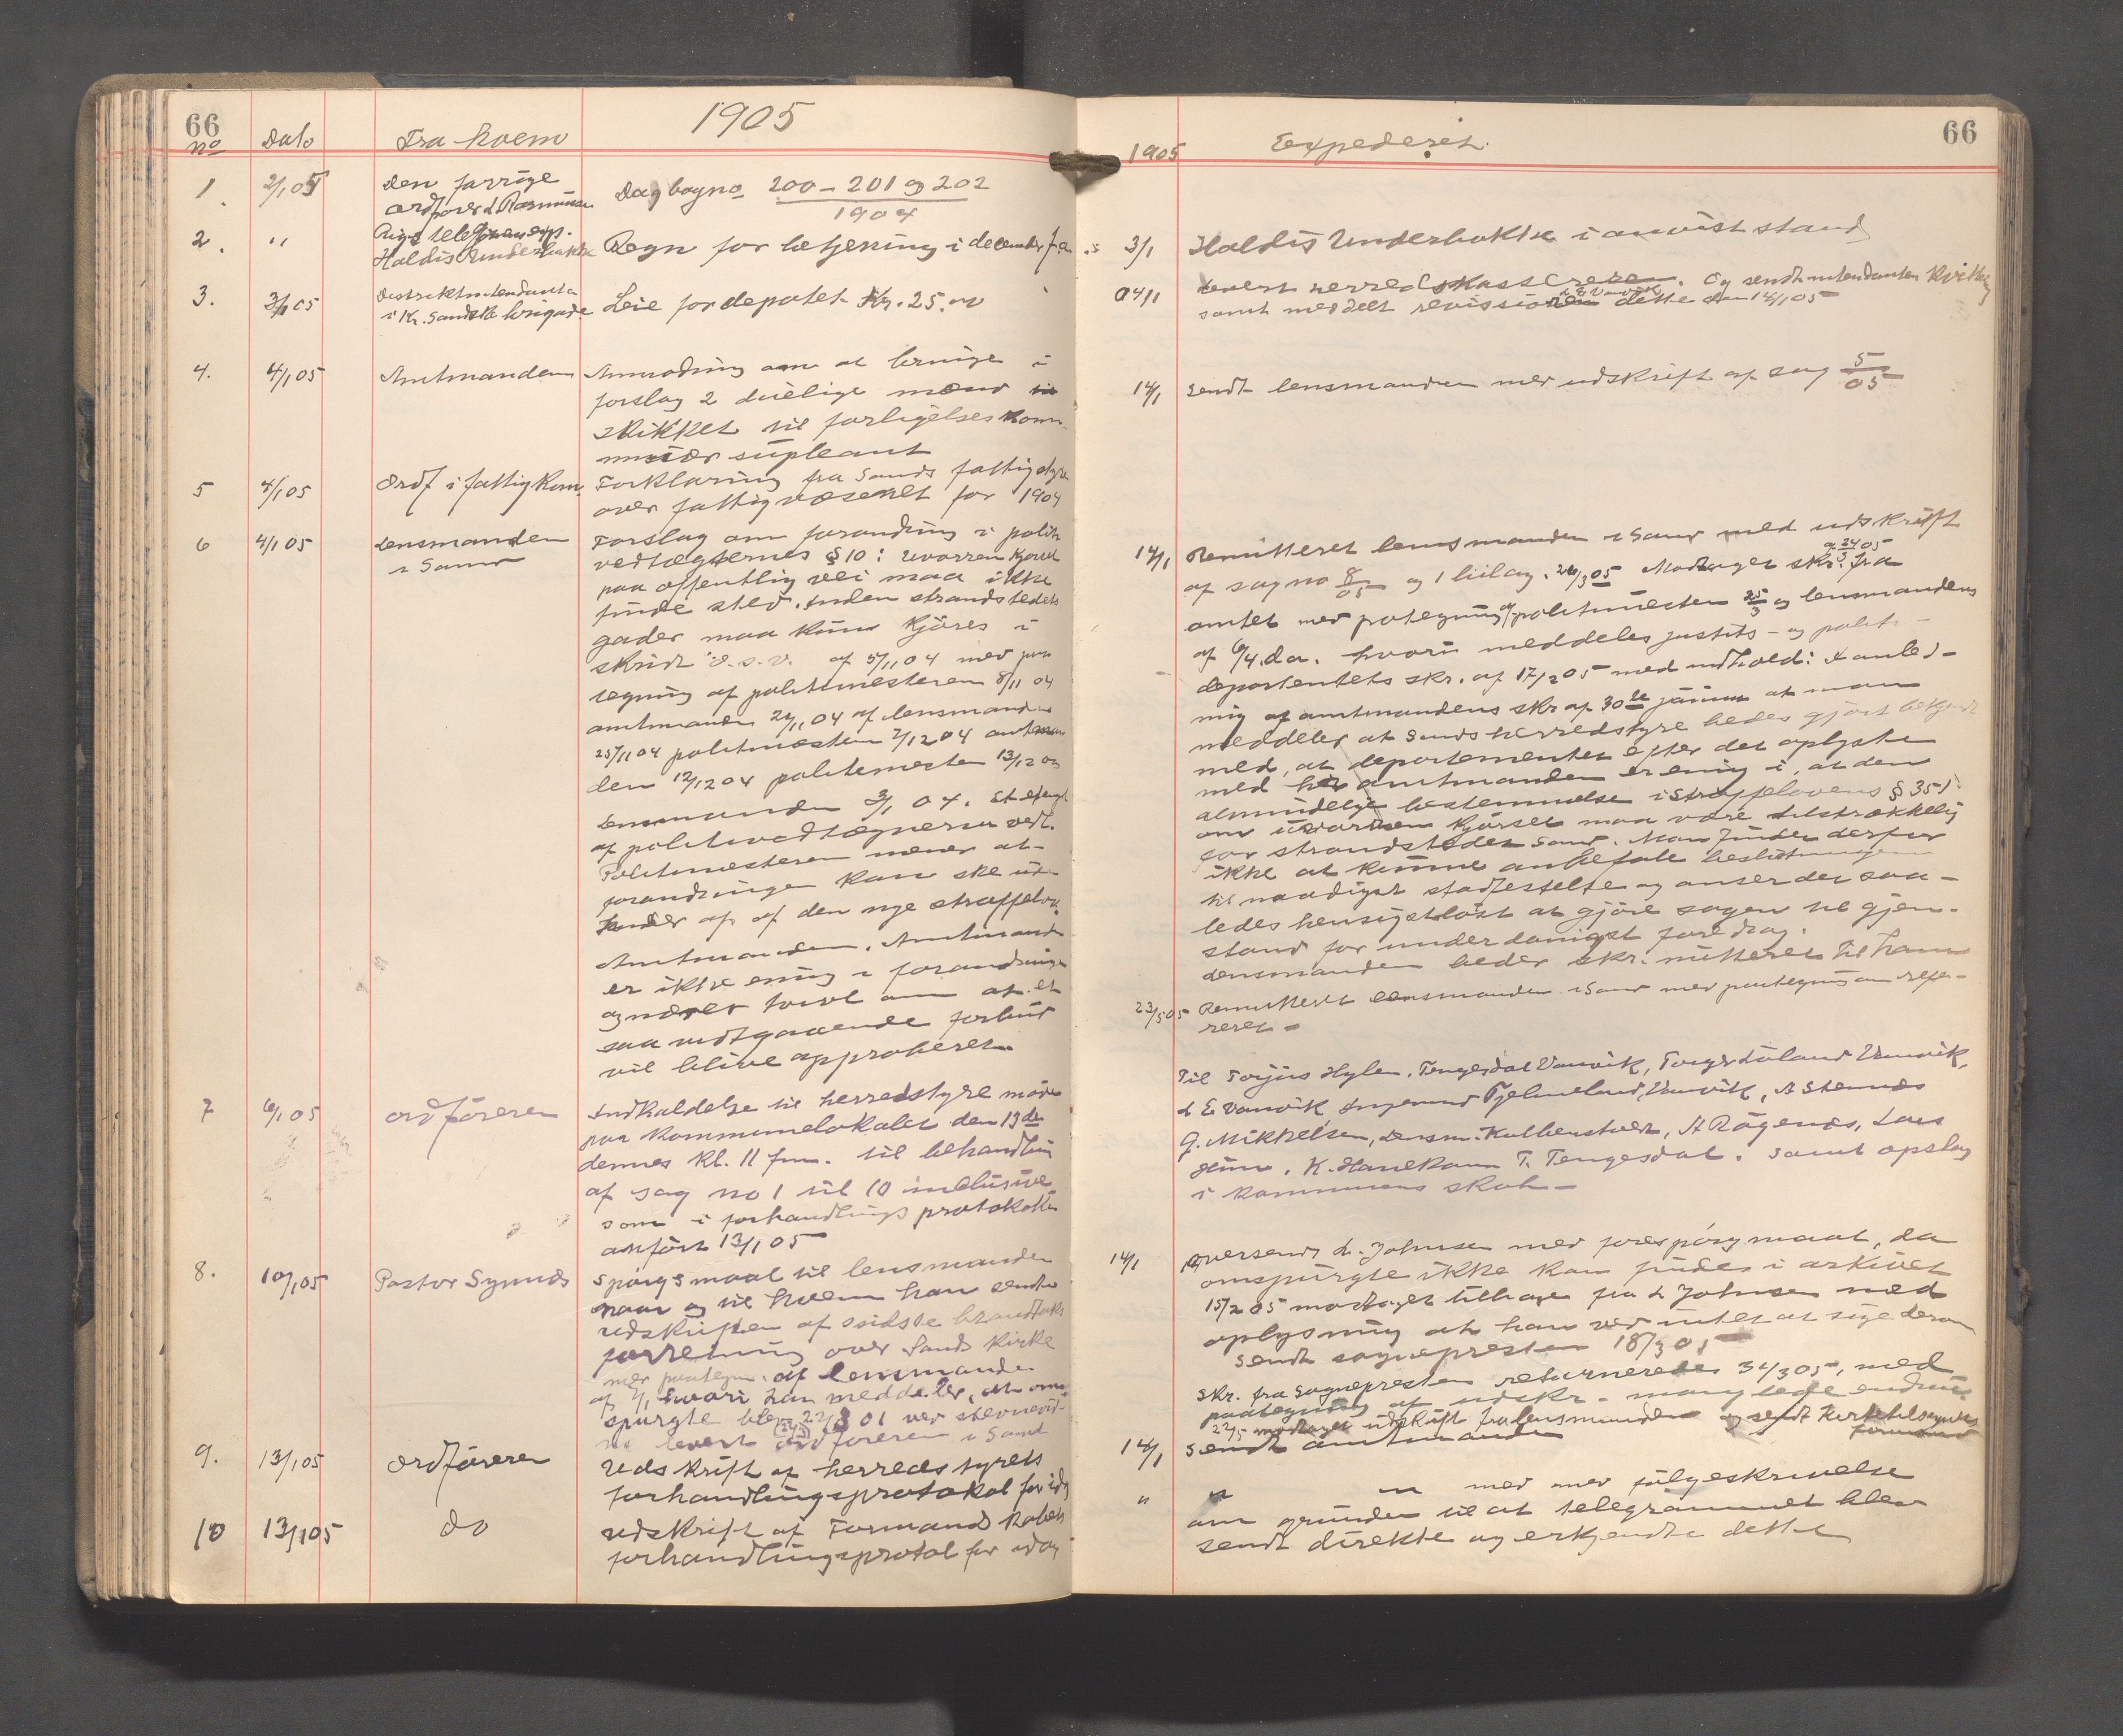 66
1905
no
Dato
Fra hvem
1.
2/1 05
Den forrige
ordfører L Rasmussen
Dagbogno 200 – 201 og 202
1904
2.
"
Rigstelefonexp.
Haldis Underbakke
Regn for betjening i december f.a.
3.
3/1 05
Distriktsintendanten
i Kr.sandske brigade
Leie for depotet Kr. 25.00
4.
4/1 05
Amtmanden
Anmodning om at bringe i
forslag 2 duelige mænd
skikket til forligelseskom-
missær supleant
5
4/1 05
Ordf i fattigkom.
Forklaring fra Sands fattigstyre
over fattigvæsenet for 1904
6
4/1 05
Lensmanden
i Sand
Forslag om forandring i politi
vedtægternes § 10: Uvorren kjørsel
paa offentlig vei maa ikke
finde sted. Inden strandstedets
gader maa kun kjöres i
skridt o.s.v. af 5/11 04 med paa
tegning af politimesteren 8/11 04
amtmanden 21/11 04 af lensmanden
25/11 04 politimesteren 7/12 04 amtman
den 12/12 04 politimesteren 13/12 04
Lensmanden 3/1 04.
af politivedtægterne vedl.
Politimesteren mener at
forandringen kan ske
af den nye straffelov.
Amtmanden. Amtmanden
er ikke enig i forandringen
og nærer tvivl om at et
saa vidtgaaende forbud
vil blive approberet
7
6/1 05
Ordföreren
Indkaldelse til herredstyre möde
paa kommunelokalet den 13de
dennes kl. 11 fm. til behandling
af sag no 1 til 10 inclusive
som i forhandlings protokollen
anfört 13/1 05
8.
10/1 05
Pastor Synnes
Spörgsmaal til lensmanden
naar og til hvem han sendte
udskriften af sidste brandtakst
forretning over Sands kirke
med paategn. af lensmanden
af 7/1 hvori han meddeler, at om-
spurgte blev 22/8 01 ved stevnevid-
ne levert ordföreren i Sand
9.
13/1 05
Ordföreren
Udskrift af herredstyrets
forhandlingsprotokol for idag
10
13/1 05
do
udskrift af Formandskabets
forhandlingsprotol for idag
66
1905
Expederet.
3/1
Haldis Underbakke i anvist stand
14/1
Levert herredskassereren. Og sendt intendanten kvittering
L E Vanvik
samt meddelt revissionen dette den 14/1 05
14/1
Sendt lensmanden med udskrift af sag 5/05
14/1
Remitteret lensmanden i Sand med udskrift
af sag no 8/05 og 1 bilag. 24/3 05 Modtaget skr. fra
amtet med paategning af politimesteren 25/3 og lensmandens
af 6/4 d.a. hvori meddeles justits- og politi-
departentets skr. af 17/2 05 med indhold: I anled-
ning af amtmandens skr af 30te januar at man
meddeler at Sands herredstyre bedes gjort bekjendt
med, at departementet efter det oplyste
med amtmanden er enig i, at den
almindelige bestemmelse i Straffelovens § 351
om uvorren kjörsel maa være tilstrækkelig
for strandstedet Sand. Man finder derfor
ikke at kunne anbefale beslutningen
til naadigst stadfestelse og anser det saa-
ledes hensigtslöst at gjöre sagen til gjen-
stand for underdanigst foredrag.
Lensmanden beder skr. mitteret til ham
23/5 05
Remitteret lensmanden i Sand med paategning om refe-
reret –
Til Torjus Hylen. Tengesdal Vanvik, Torger Löland Vanvik,
L E Vanvik Ingemund Fjelmeland, Vanvik, A Stennes
G. Mikkelsen, Lensm. Kolbenstvedt, A Rögenes, Lars
Hiim. K. Havekaam T. Tengesdal. Samt opslag
i kommunens skab –
14/1
Oversendt L. Johnsen med forespörgmaal, da
omspurgte ikke kan findes i arkivet
15/2 05 modtaget tilbage fra L Johnsen med
oplysning at han ved intet at sige derom
Sendt sognepresten 18/3 05
Skr. fra Sognepresten returneredes 31/3 05, med
paategning af udskr. manglede endnu.
22/5 modtaget udskrift fra lensmanden og sendt Kirketilsynets
formand
14/1
Sendt amtmanden
"
" " med med fölgeskrivelse
om grunden til at telegrammet blev
sendt direkte og erkjendte dette